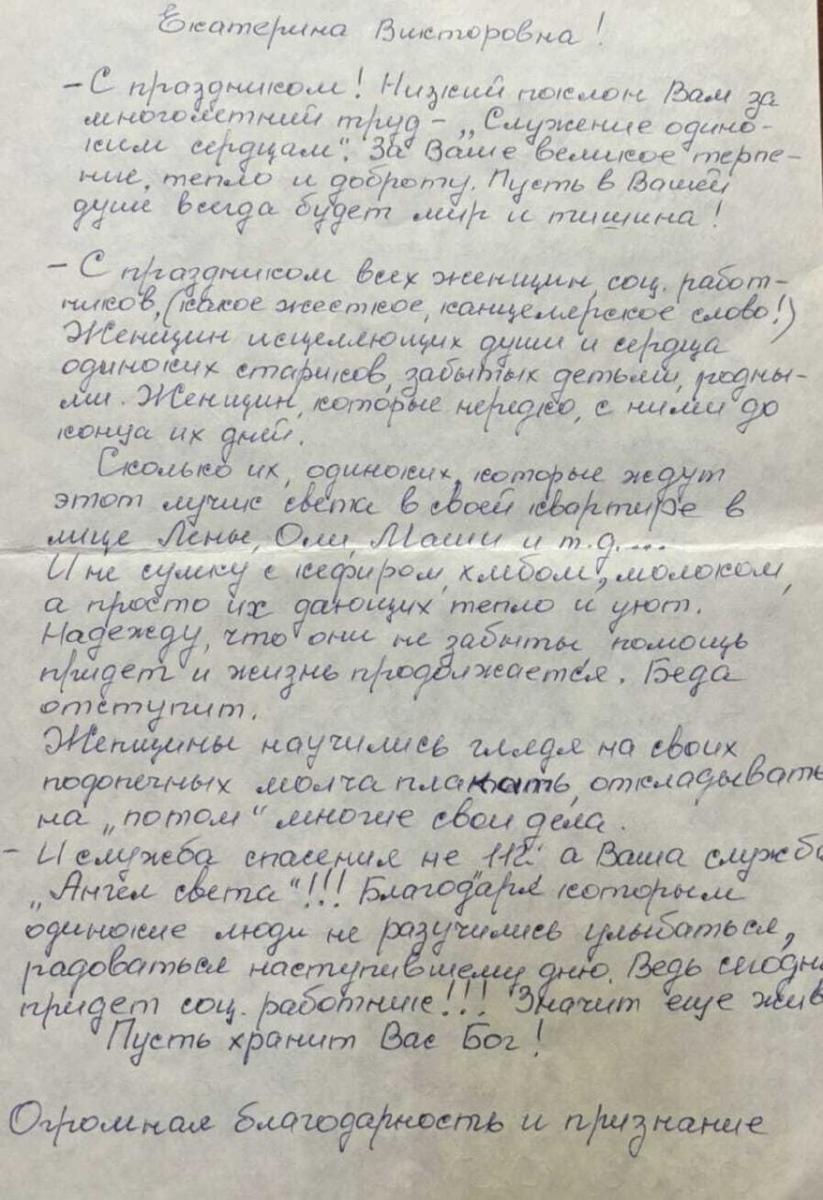 Екатерина Викторовна!
– С праздником! Низкий поклон Вам за
многолетний труд – „Служение одино-
ким сердцам". За Ваше великое терпе-
ние, тепло и доброту. Пусть в Вашей
душе всегда будет мир и тишина!
– С праздником всех женщин, соц. работ-
ников, (какое жесткое, канцелярское слово!)
Женщин исцеляющих души и сердца
одиноких стариков, забытых детьми, родны-
ми. Женщин, которые нередко, с ними до
конца их дней.
Сколько их, одиноких, которые ждут
этот лучик света в своей квартире в
лице Лены, Оли, Маши и т.д....
И не сумку с кефиром, хлебом, молоком,
а просто их дающих тепло и уют.
Надежду, что они не забыты помощь
придет и жизнь продолжается. Беда
отступит.
Женщины научились глядя на своих
подопечных молча плакать, откладывать
на „потом" многие свои дела.
– И служба спасения не 112 а Ваша служба
„Ангел света"!!! Благодаря которым
одинокие люди не разучились улыбаться,
радоваться наступившему дню. Ведь сегодня
придет соц. работник!!! Значит еще жив
Пусть хранит Вас Бог!
Огромная благодарность и признание